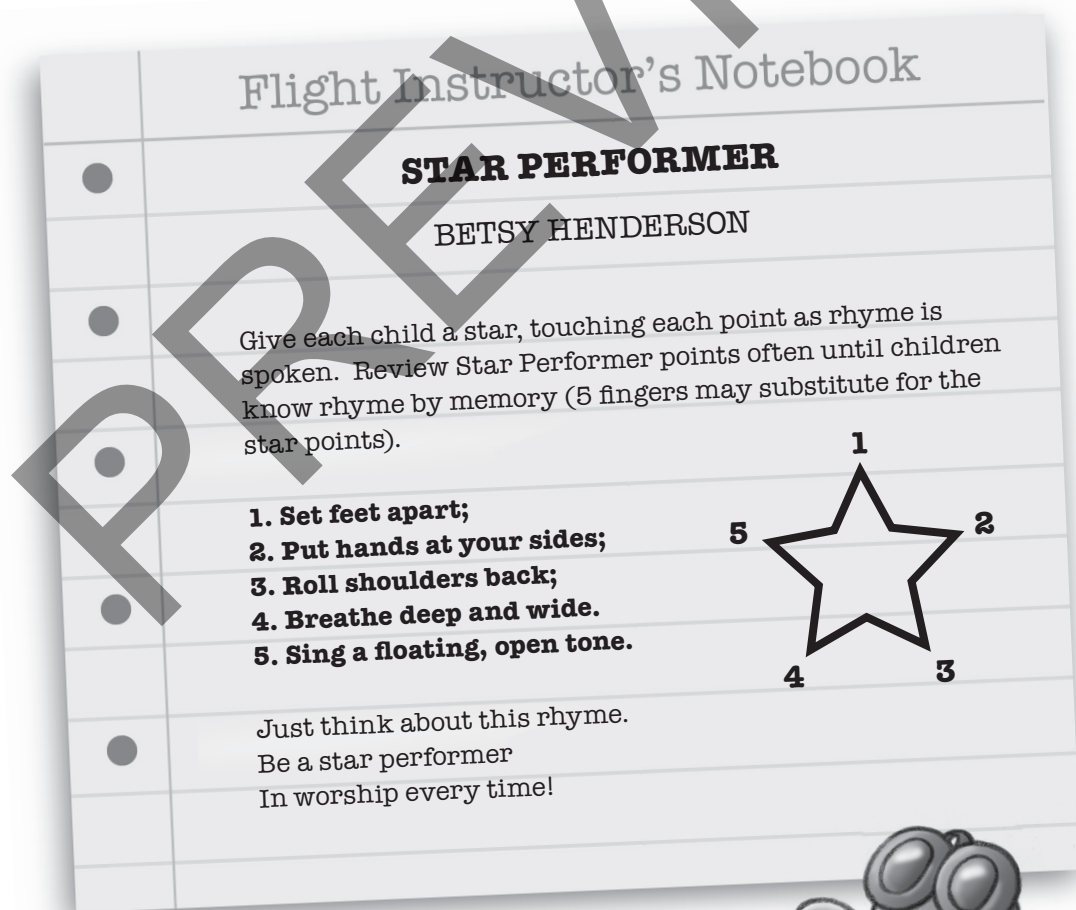 Flight Instructor's Notebook
STAR PERFORMER
BETSY HENDERSON
Give each child a star, touching each point as rhyme is
spoken.  Review Star Performer points often until children
know rhyme by memory (5 fingers may substitute for the
star points).
1. Set feet apart;
2. Put hands at your sides;
3. Roll shoulders back;
4. Breathe deep and wide.
5. Sing a floating, open tone.
1
2
3
4
5
Just think about this rhyme.
Be a star performer
In worship every time!
PREV